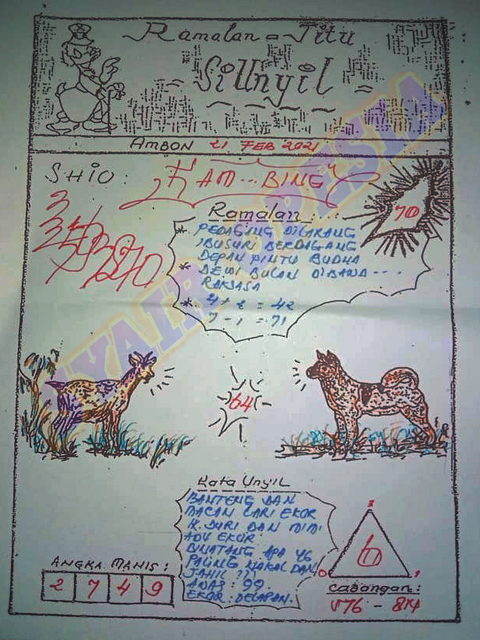 Ramalan = Jitu
Si Unyil
AMBON 21 FEB 2021
SHIO :
KAM - BING
Ramalan :
70
* PEDAGING DILARANG
IBUSURI BERDAGANG
DEPAN PINTU BUDHA
* DEWI BULAN DIBAWA ---
RAKSASA
* 4 + 2 = 42
7 - 1 = 71
64
Kata Unyil
BANTENG DAN
MACAN CARI EKOR
K. JURI DAN MIMI
ADU EKOR
BINATANG APA YG
PALING NAKAL DAN
JAHIL ??
AWAS : 99.
EKOR : DELAPAN.
ANGKA MANIS :
2 7 4 9
6
0
1
Cabangan :
876 - 814